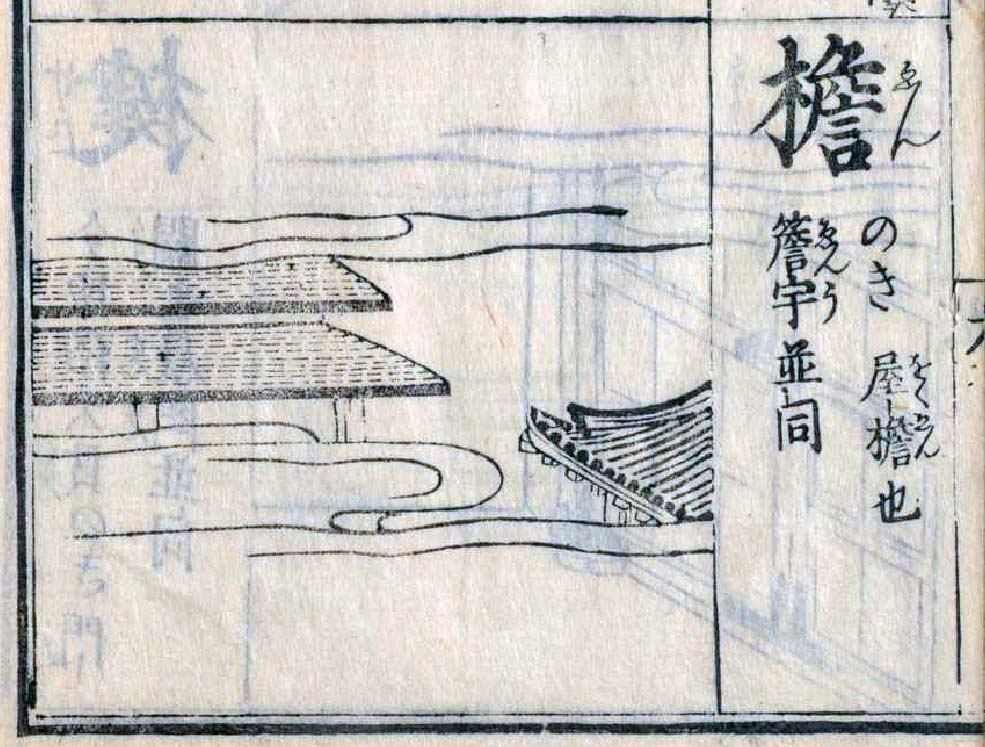 檐
ゑん
のき 屋檐也
をくゑん
簷宇並同
ゑんう